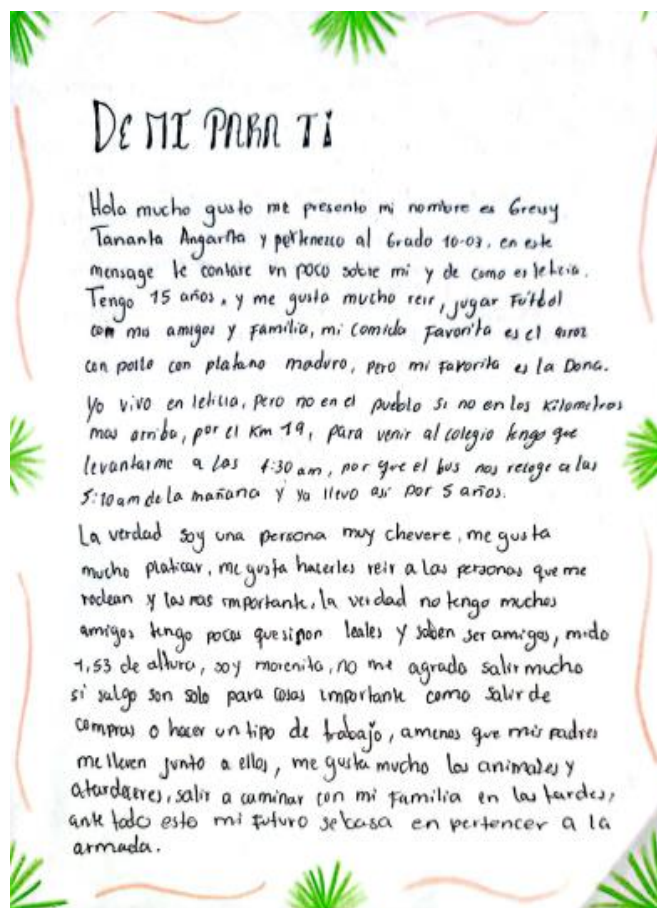 DE MI PARA TI
Hola mucho gusto me presento mi nombre es Greisy
Tananta Angarita y pertenesco al Grado 10-03, en este
mensage le contare un poco sobre mi y de como es leticia.
Tengo 15 años, y me gusta mucho reir, jugar Futbol
con mis amigos y familia, mi comida Favorita es el arroz
con pollo con platano maduro, pero mi favorita es la Dona.
Yo vivo en leticia, pero no en el pueblo si no en los Kilometros
mas arriba, por el Km 19, para venir al colegio tengo que
levantarme a las 4:30 am, por que el bus nos recoge a las
5:10 am de la mañana y ya llevo asi por 5 años.
La verdad soy una persona muy chevere, me gusta
mucho platicar, me gusta hacerles reir a las personas que me
rodean y las mas importante, la verdad no tengo muchos
amigos tengo pocos que si son leales y saben ser amigos, mido
1,53 de altura, soy morenita, no me agrada salir mucho
si salgo son solo para cosas importante como salir de
compras o hacer un tipo de trabajo, amenos que mis padres
me lleven junto a ellos, me gusta mucho los animales y
atardeceres, salir a caminar con mi familia en las tardes,
ante todo esto mi futuro se basa en pertencer a la
armada.